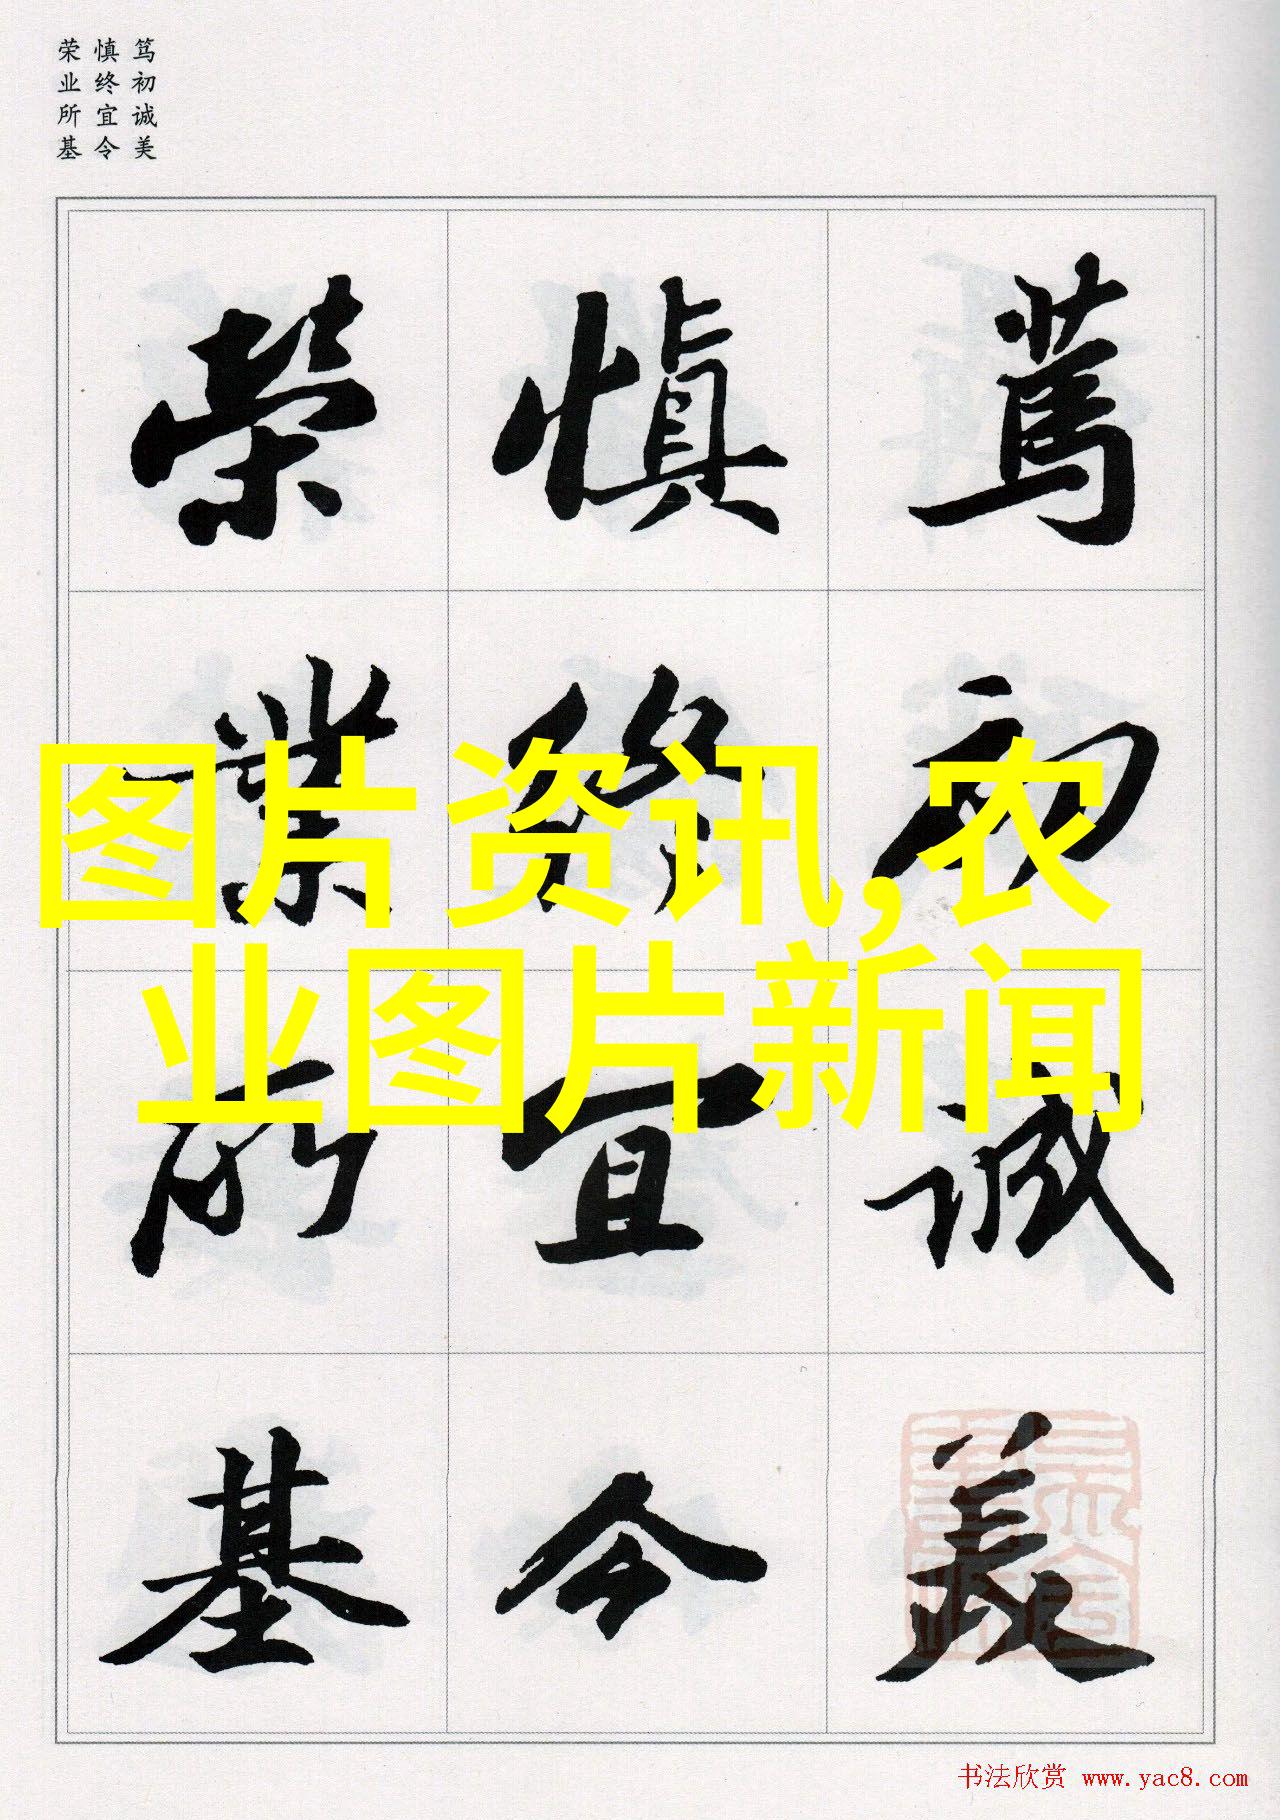 笃初诚美
慎终宜令
荣业所基
篤初誠美
慎終宜令
榮業所基
图片资讯,农
业图片新闻
书法欣赏 www.yac8.com